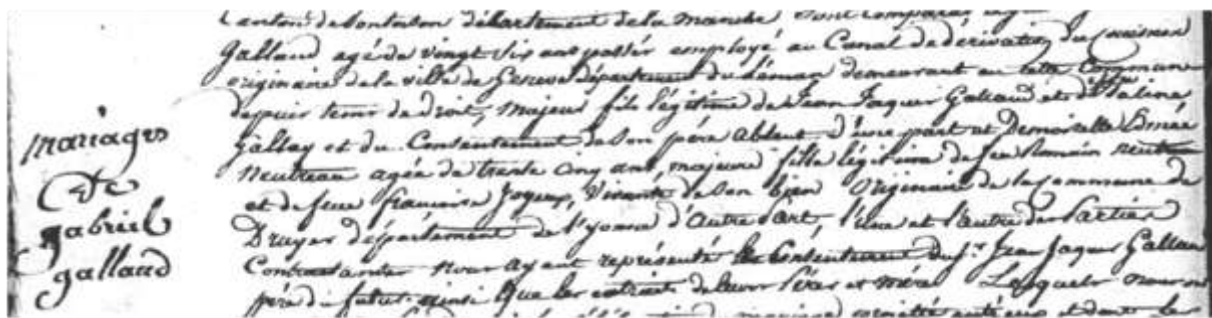 Canton de Pontorson département de la manche sont comparus
Gallaud agé de vingt Six ans passés employé au Canal de dérivation du Couesnon
originaire de la ville de Geneve Département du Léman demeurant en cette Commune
depuis tems de droit, majeur fils légitime de Jean Jaques Galland et de
Gallay et du Consentement de son père absent d'une part et Demoiselle Aimée
Neutreau agée de trente cinq ans, majeure fille légitime de feu Romain neutreau
et de feue francoise Joyeux, Vivante de son bien originaire de la Commune de
Druyes département de l'yonne d'autre Part, l'une et l'autre des Parties
Contractantes nous ayant représenté le Consentement du Sr. Jean Jaques Gallau
père du futur ainsi que les extraits de leurs Pères et mères Lesquels nous ont
mariages
de
gabriel
gallaud